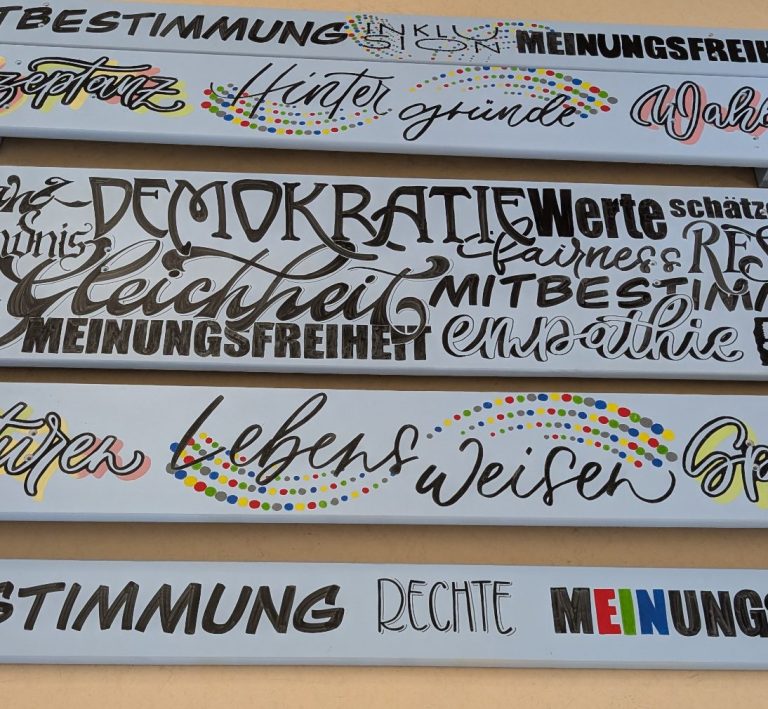 TBESTIMMUNG INKLUSION MEINUNGSFREIH
zeptanz Hinter gründe Wah
DEMOKRATIE Werte schätz
ndnis fairness RES
Gleichheit MITBESTIMM
MEINUNGSFREIHEIT empathie
turen Lebens weisen Sp
STIMMUNG RECHTE MEINUNGS